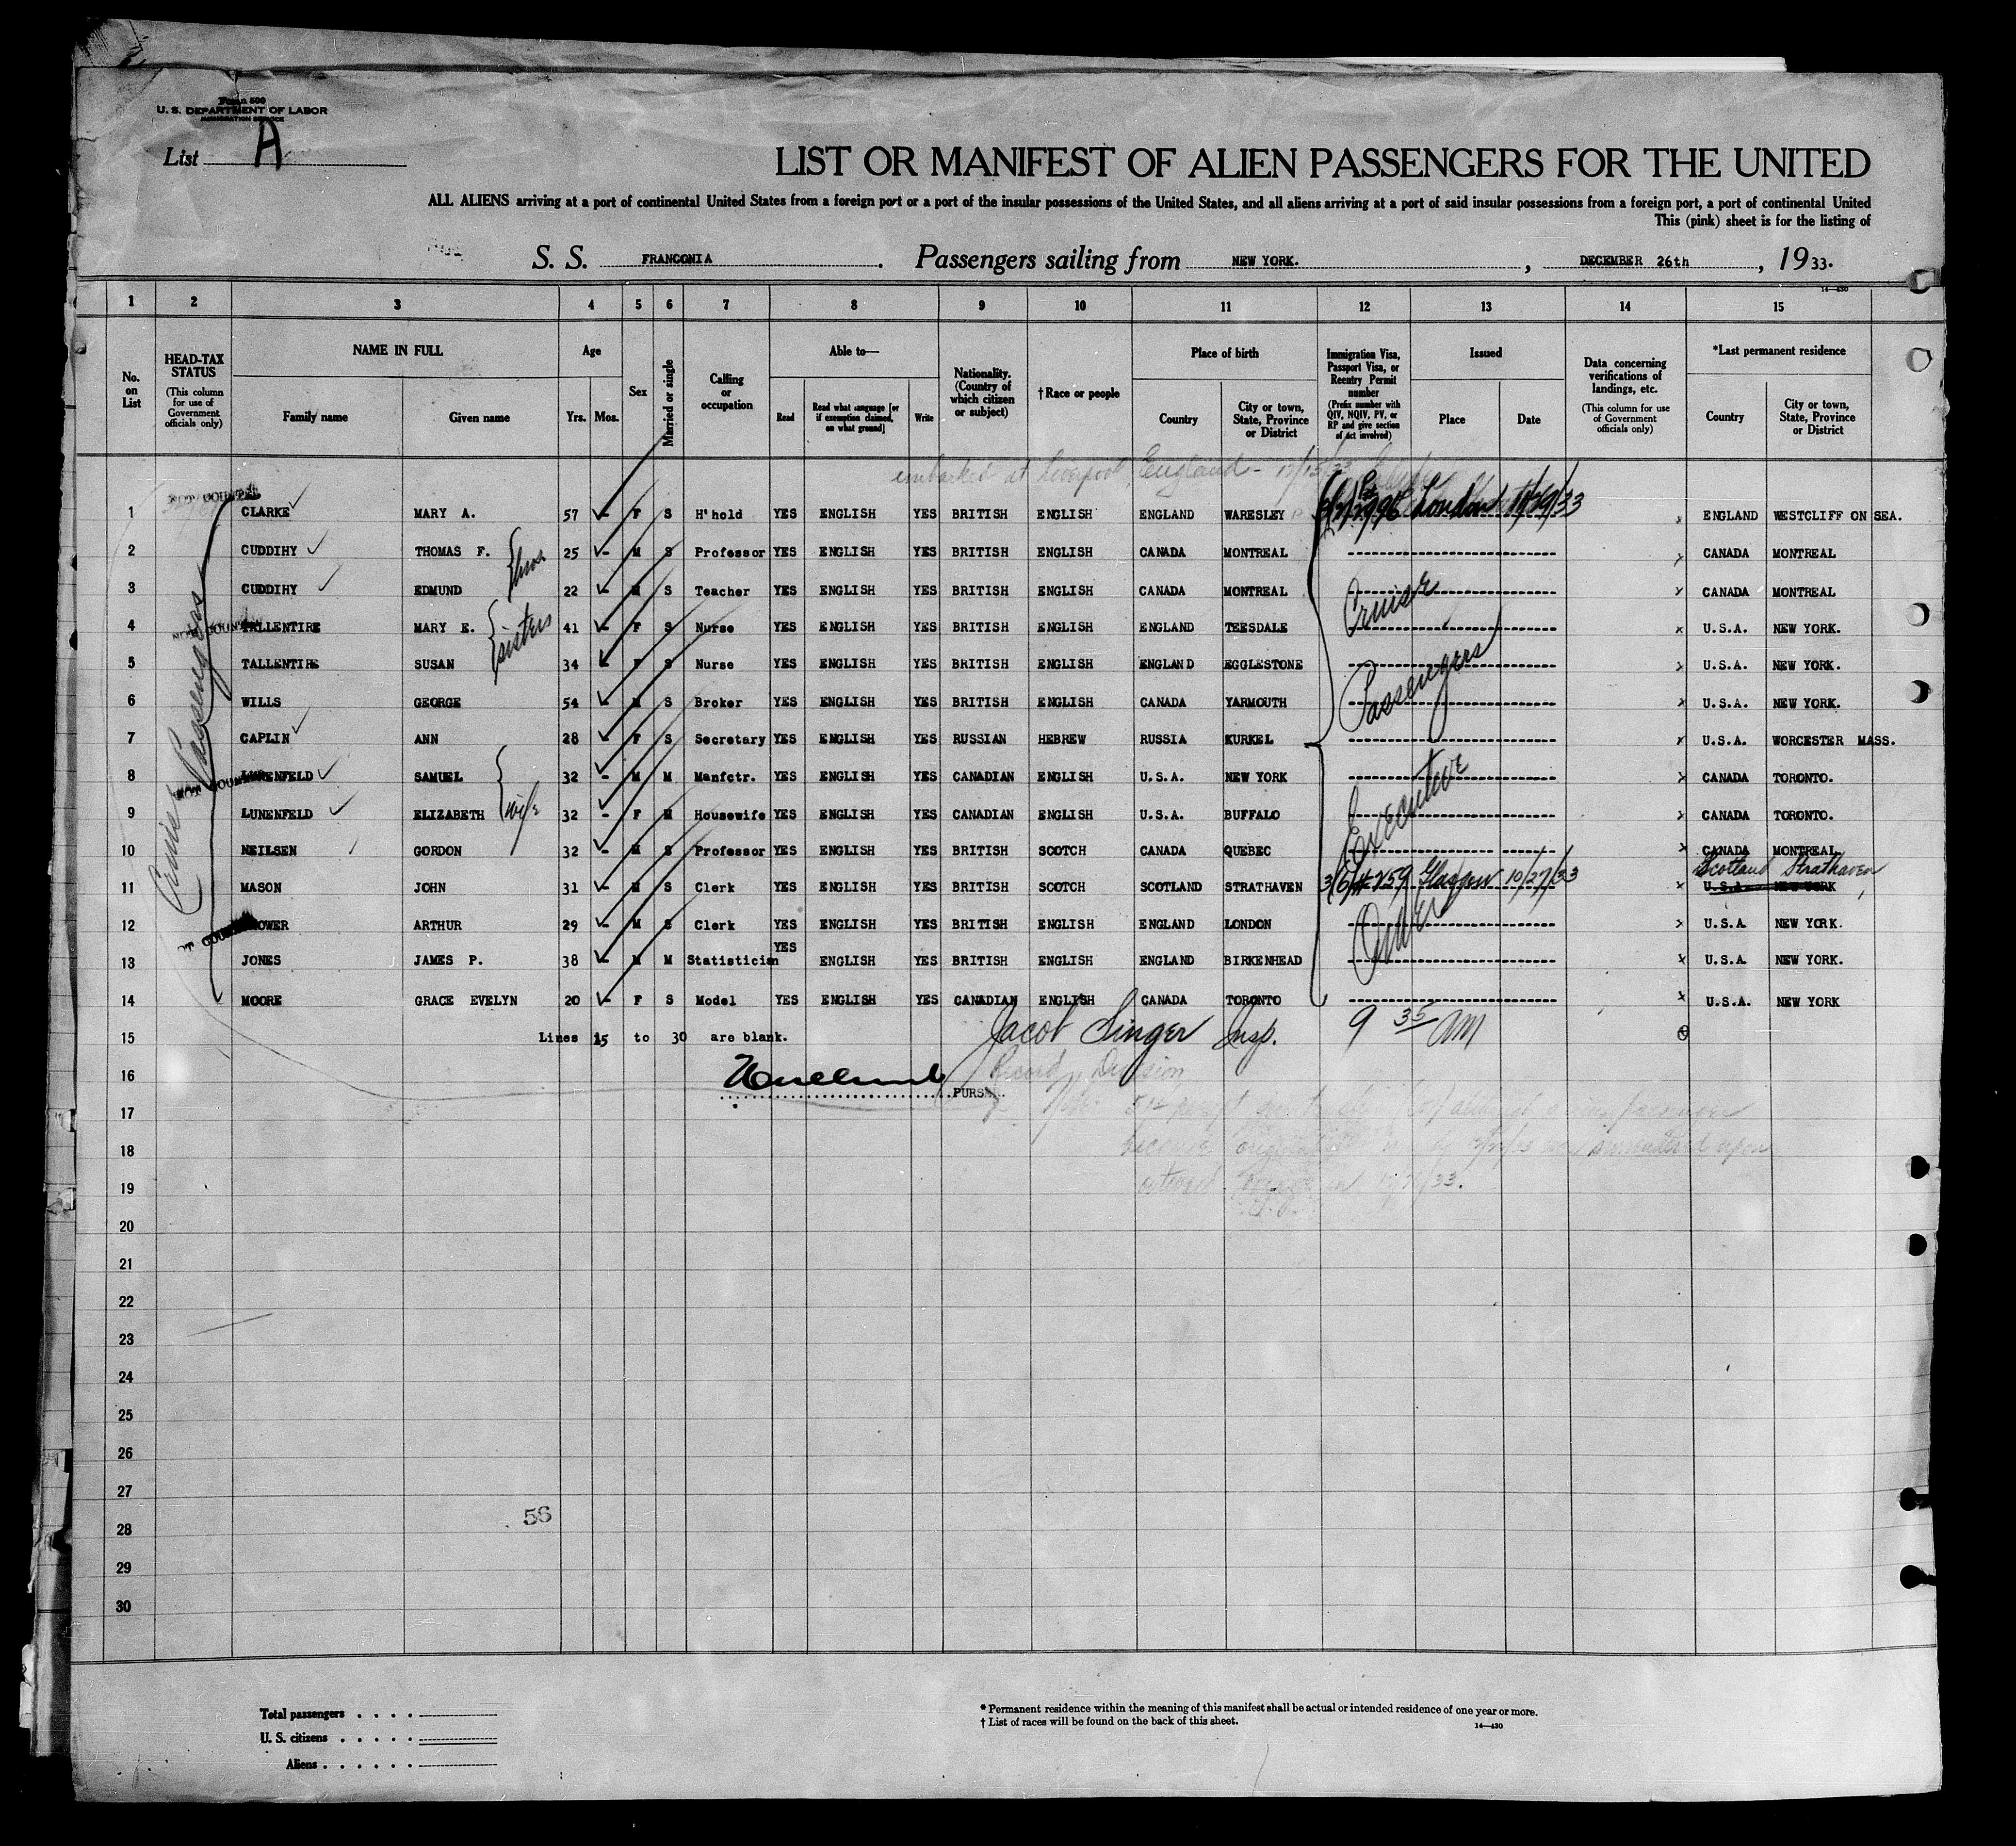 Form 500
U. S. DEPARTMENT OF LABOR
IMMIGRATION SERVICE
List A
LIST OR MANIFEST OF ALIEN PASSENGERS FOR THE UNITED
ALL ALIENS arriving at a port of continental United States from a foreign port or a port of the insular possessions of the United States, and all aliens arriving at a port of said insular possessions from a foreign port, a port of continental United
This (pink) sheet is for the listing of
S. S. FRANCONIA. Passengers sailing from NEW YORK., DECEMBER 26th, 1933.
14—430
1 2 3 4 5 6 7 8 9 10 11 12 13 14 15
No. on List
HEAD-TAX STATUS (This column for use of Government officials only)
NAME IN FULL Family name Given name
Age Yrs. Mos.
Sex
Married or single
Calling or occupation
Able to— Read Read what language [or if exemption claimed, on what ground] Write
Nationality. (Country of which citizen or subject)
†Race or people
Place of birth Country City or town, State, Province or District
Immigration Visa, Passport Visa, or Reentry Permit number (Prefix number with QIV, NQIV, PV, or RP and give section of Act involved)
Issued Place Date
Data concerning verifications of landings, etc. (This column for use of Government officials only)
*Last permanent residence Country City or town, State, Province or District
embarked at Liverpool, England -
NOT COUNTED
Cruise Passengers
1 CLARKE MARY A. 57 - F S H'hold YES ENGLISH YES BRITISH ENGLISH ENGLAND WARESLEY London ENGLAND WESTCLIFF ON SEA.
2 CUDDIHY THOMAS F. 25 - M S Professor YES ENGLISH YES BRITISH ENGLISH CANADA MONTREAL CANADA MONTREAL
3 CUDDIHY EDMUND 22 - M S Teacher YES ENGLISH YES BRITISH ENGLISH CANADA MONTREAL Cruise CANADA MONTREAL
4 TALLENTIRE MARY E. sisters 41 - F S Nurse YES ENGLISH YES BRITISH ENGLISH ENGLAND TEESDALE U.S.A. NEW YORK.
5 TALLENTIRE SUSAN 34 - F S Nurse YES ENGLISH YES BRITISH ENGLISH ENGLAND EGGLESTONE Passengers U.S.A. NEW YORK.
6 WILLS GEORGE 54 - M S Broker YES ENGLISH YES BRITISH ENGLISH CANADA YARMOUTH U.S.A. NEW YORK.
7 CAPLIN ANN 28 - F S Secretary YES ENGLISH YES RUSSIAN HEBREW RUSSIA KURKEL U.S.A. WORCESTER MASS.
8 LUNENFELD SAMUEL 32 - M M Manfctr. YES ENGLISH YES CANADIAN ENGLISH U.S.A. NEW YORK Executive CANADA TORONTO.
9 LUNENFELD ELIZABETH wife 32 - F M Housewife YES ENGLISH YES CANADIAN ENGLISH U.S.A. BUFFALO CANADA TORONTO.
10 NEILSEN GORDON 32 - M S Professor YES ENGLISH YES BRITISH SCOTCH CANADA QUEBEC CANADA MONTREAL
Scotland Strathaven
11 MASON JOHN 31 - M S Clerk YES ENGLISH YES BRITISH SCOTCH SCOTLAND STRATHAVEN Glasgow 10/27/33 U.S.A. NEW YORK
12 29 - M S ARTHUR Clerk YES ENGLISH YES BRITISH ENGLISH ENGLAND LONDON Order U.S.A. NEW YORK.
13 JONES JAMES P. 38 - M M Statistician YES ENGLISH YES BRITISH ENGLISH ENGLAND BIRKENHEAD U.S.A. NEW YORK.
14 MOORE GRACE EVELYN 20 - F S Model YES ENGLISH YES CANADIAN ENGLISH CANADA TORONTO U.S.A. NEW YORK
15 Lines 15 to 30 are blank. Jacob Singer Insp. 9 35 AM
16 Record Division
PURSER.
17
18
19
20
21
22
23
24
25
26
27
56
28
29
30
Total passengers
U. S. citizens
Aliens
* Permanent residence within the meaning of this manifest shall be actual or intended residence of one year or more.
† List of races will be found on the back of this sheet.
14—430